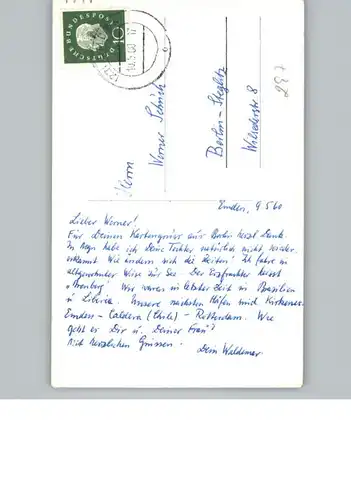 DEUTSCHE BUNDESPOST
10
Herrn
Werner Schuch
Berlin-Steglitz
8
297
Emden, 9.5.60
Lieber Werner!
Für Deinen Kartengruss aus Berlin herzl. Dank.
In habe ich Deine Tochter natürlich nicht wieder-
erkannt. Wie ändern sich die Zeiten! Ich fahre in
altgewohnter Weise zur See. Der Erzfrachter heisst
Wir waren in letzter Zeit in Brasilien
u. Liberia. Unsere nächsten Häfen sind Kirkenes-
Emden - Caldera (Chile) - Rotterdam. Wie
geht es Dir u. Deiner Frau?
Mit herzlichen Grüssen!
Dein Waldemar